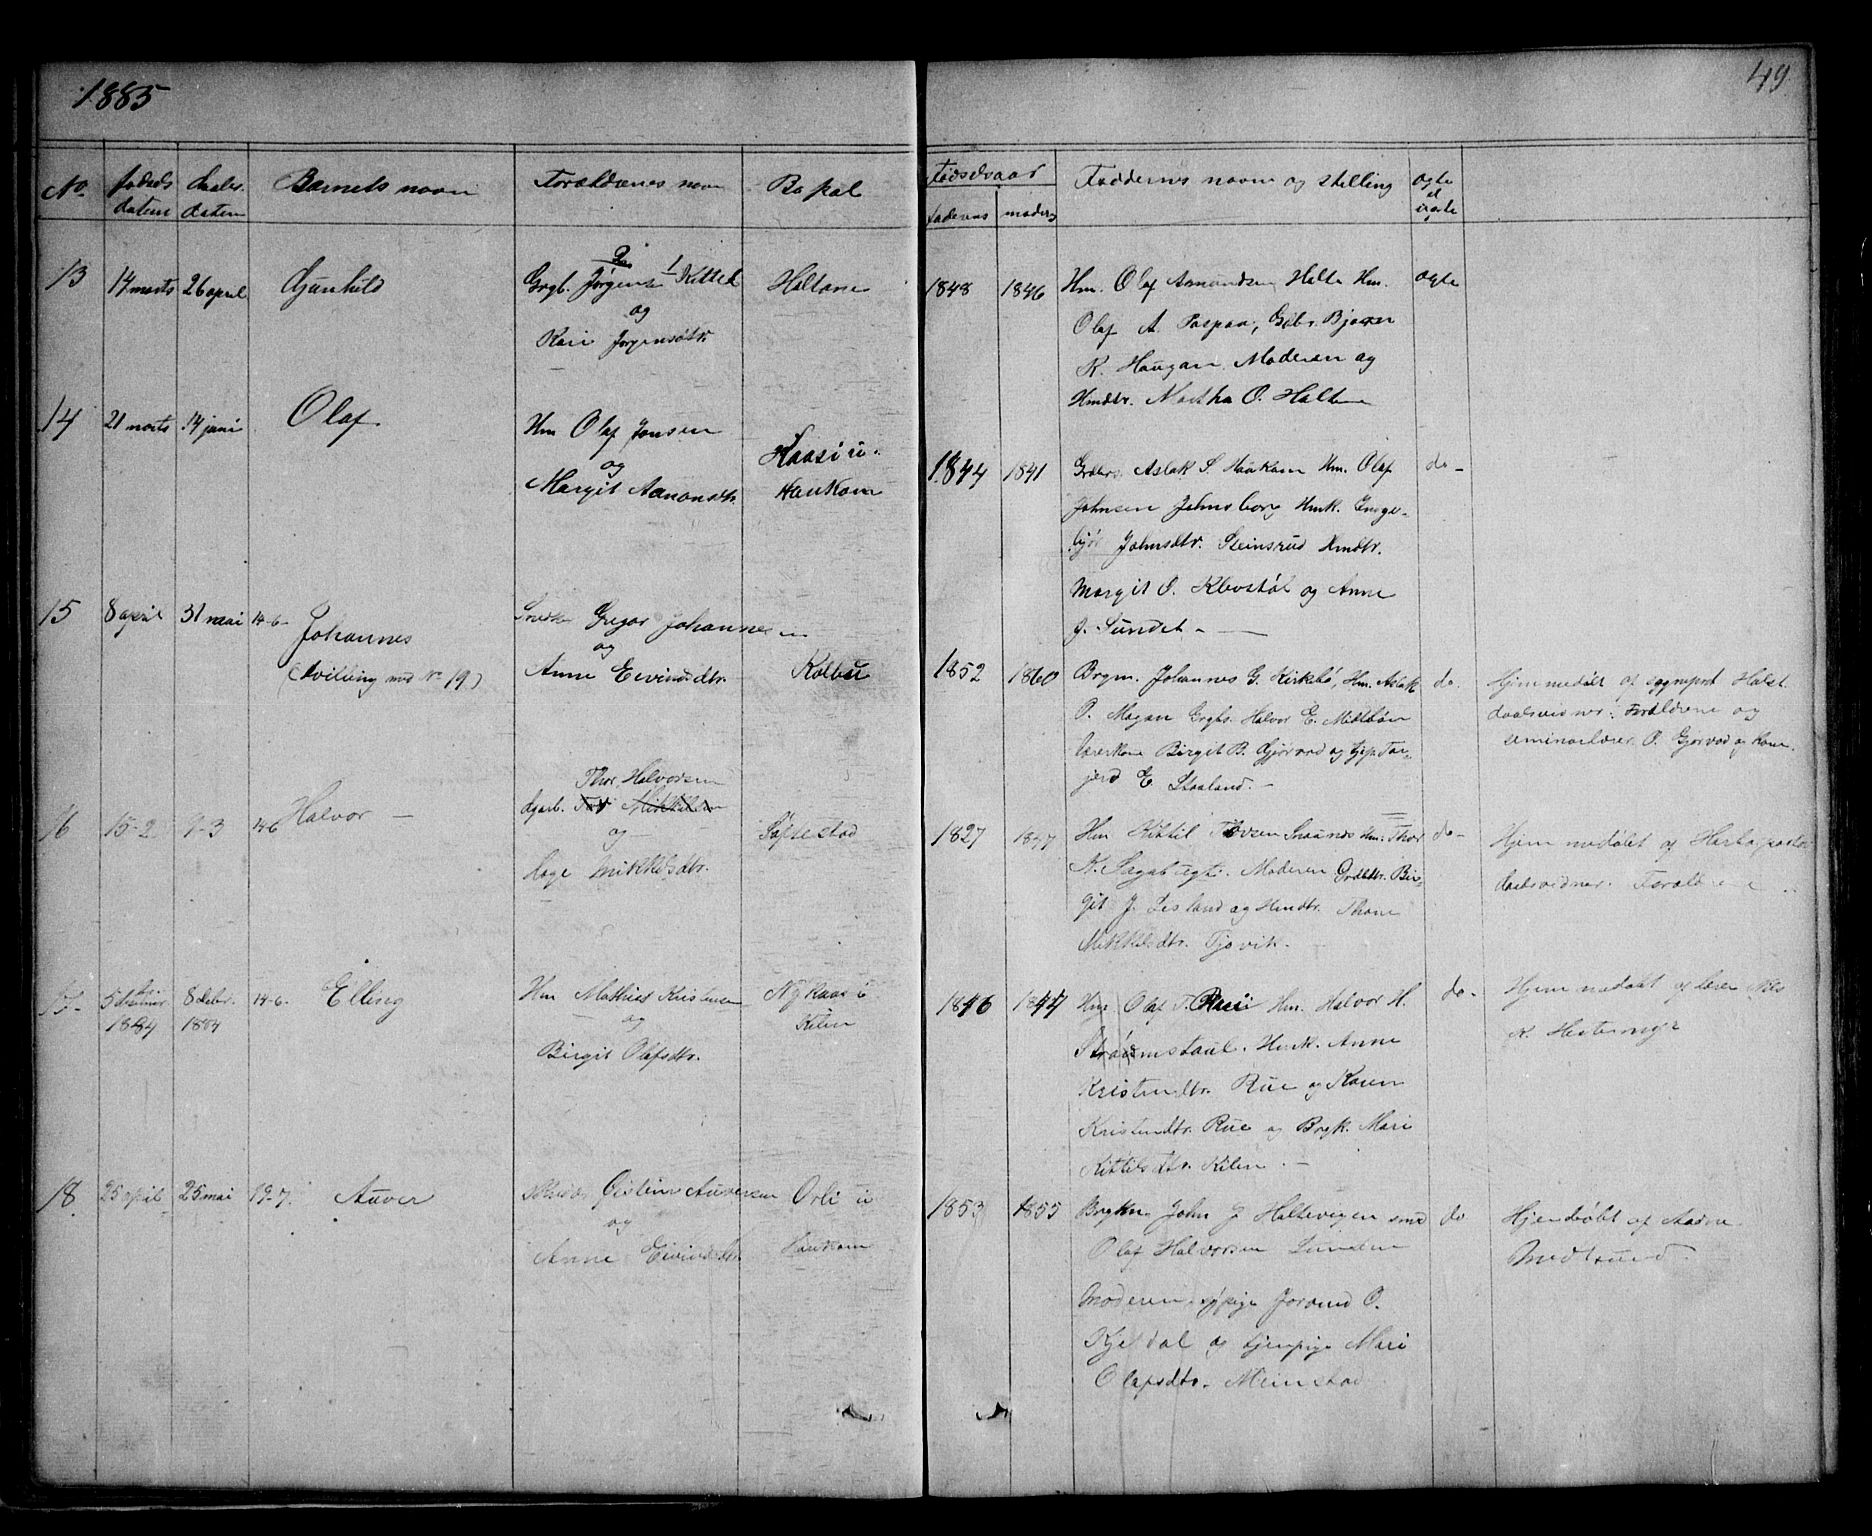 1885
49.
No.
fødsels
datum
daabs.
datum
Barnets navn
Forældrenes navn
Bopæl
Fødselsaar
faderens
moders
Faddernes navne og stilling
ægte
el
uægte
13
14 marts
26 april
Gunhild
Grgb. Jørgen Kittel
og
Kari Jørgensdtr.
Haltane
1848
1846
Hm. Olaf Amundsen Halte Hm.
Olaf A. Gdbr. Bjørn
K. Haugan. Moderen og
Hmdtr. Martha O. Halten
ægte
14
21 marts
14 juni
Olaf.
Hm Olaf Jonsen
og
Margit Aanonsdtr.
Haasi u.
Haukom
1844
1841
Aslak S. Haukom Hm. Olaf
Johnsen Johnsborg Hmk. Inge-
bjør Johnsdtr. Steinsrud Hmdtr.
Margit O. Klevstøl og Anne
J. Sundet -
do -
15
8 april
31 mai
14-6-
Johannes
(tvilling med No 19)
Gregar Johannesen
og
Anne Eivindsdtr.
Kolbu
1852
1860
Brgm. Johannes G. Kirkebø, Hm. Aslak
O. Mogan Halvor E. Midtbøen
lærerkone Birgit B. Gjørvad og Tar-
jerd E. Staaland. -
do.
Hjemmedøbt af Holst
daabsvidner: Forældrene og
seminarlærer O. Gjørvad og kone.
16
15-2
9-3
14-6
Halvor -
Thor Halvorsen
og
Aage Mikkelsdtr.
Søftestad
1827
Hm Kittil Tovsen Hm. Thor
K. Moderen Grdbdtr. Bir-
git J. Lisland og Hmdtr. Thone
Mikkelsdtr. Tjovik.
do -
Hjemmedøbt af
daabsvidner. Forældrene
17.
5 december
1884
8 debr.
1884
14-6.
Elling
Hm Mathias Kristensen
og
Birgit Olafsdtr.
Nykaas i
Kilen
1846
1847
Hm Olaf T. Hm. Halvor H.
Strømstaul. Hmk. Anne
Kristensdtr. Rue og Karen
Kristensdtr. Rue og Brgk. Mari
Kittilsdtr. Kilen. -
do -
Hjemmedøbt af lærer
K. Hestemyr
18.
25 april
25 mai
19-7.
Auver
Øistein Auversen
og
Anne Eivindsdtr.
Orli i
Haukom
1853
1855
John J. Haltevigen smd
Olaf Halvorsen Lunden
moderen, sypige Jorand O.
Kjeldal og tjenpige Mari
Olafsdtr. Meinstad
do
Hjemdøbt af Aadne
Midtsund.